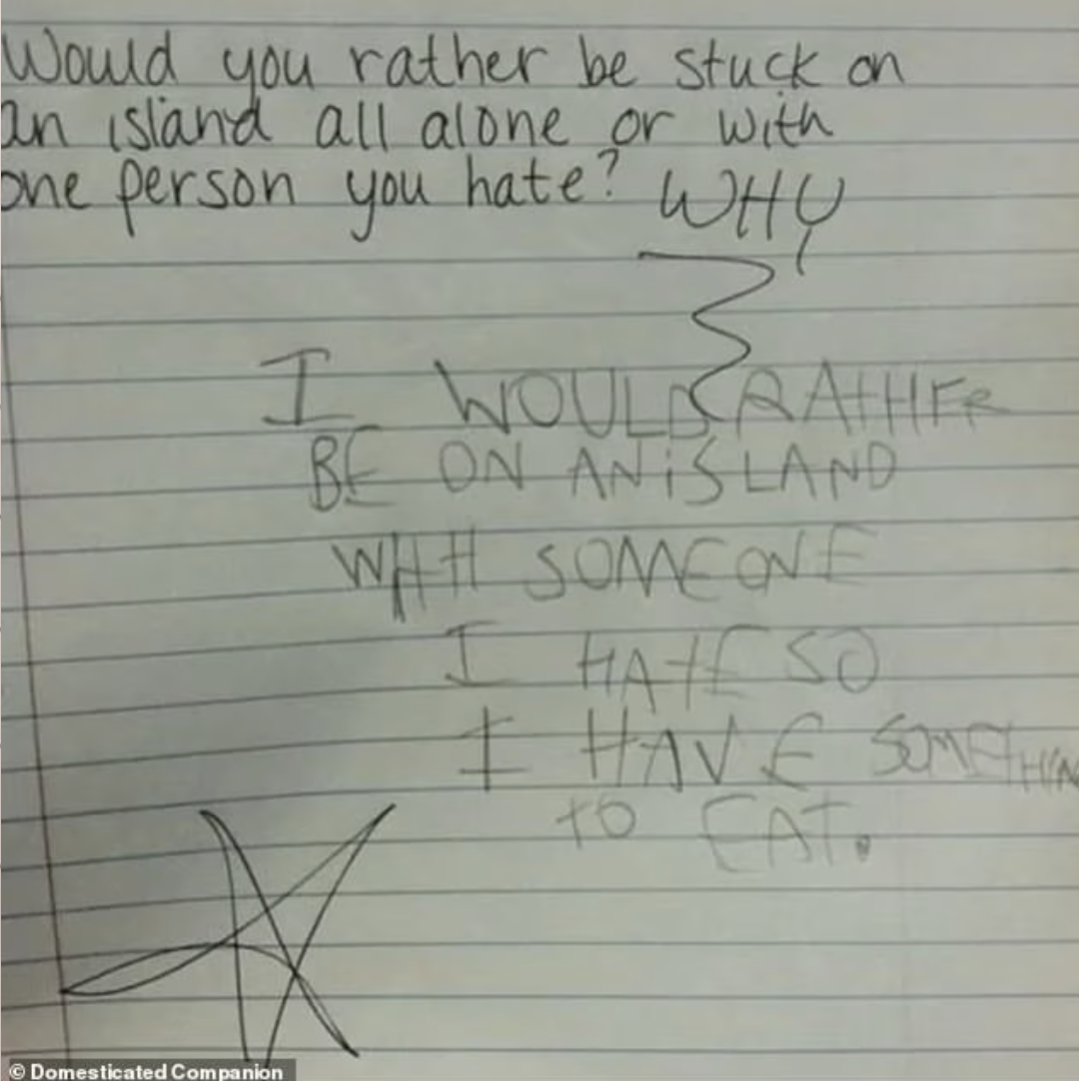 Would you rather be stuck on
an island all alone or with
one person you hate? WHY
I WOULD RATHER
BE ON AN iSLAND
WITH SOMEONE
I HATE SO
I HAVE SOMETHIN
TO EAT.
© Domesticated Companion